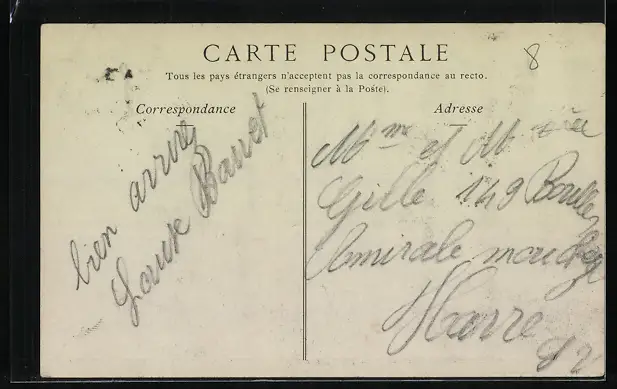 CARTE POSTALE
8
Tous les pays étrangers n'acceptent pas la correspondance au recto.
(Se renseigner à la Poste).
Correspondance
bien arrivé
Adresse
Mme et M
Gille 149 Boule
Amirale mouchez
Havre